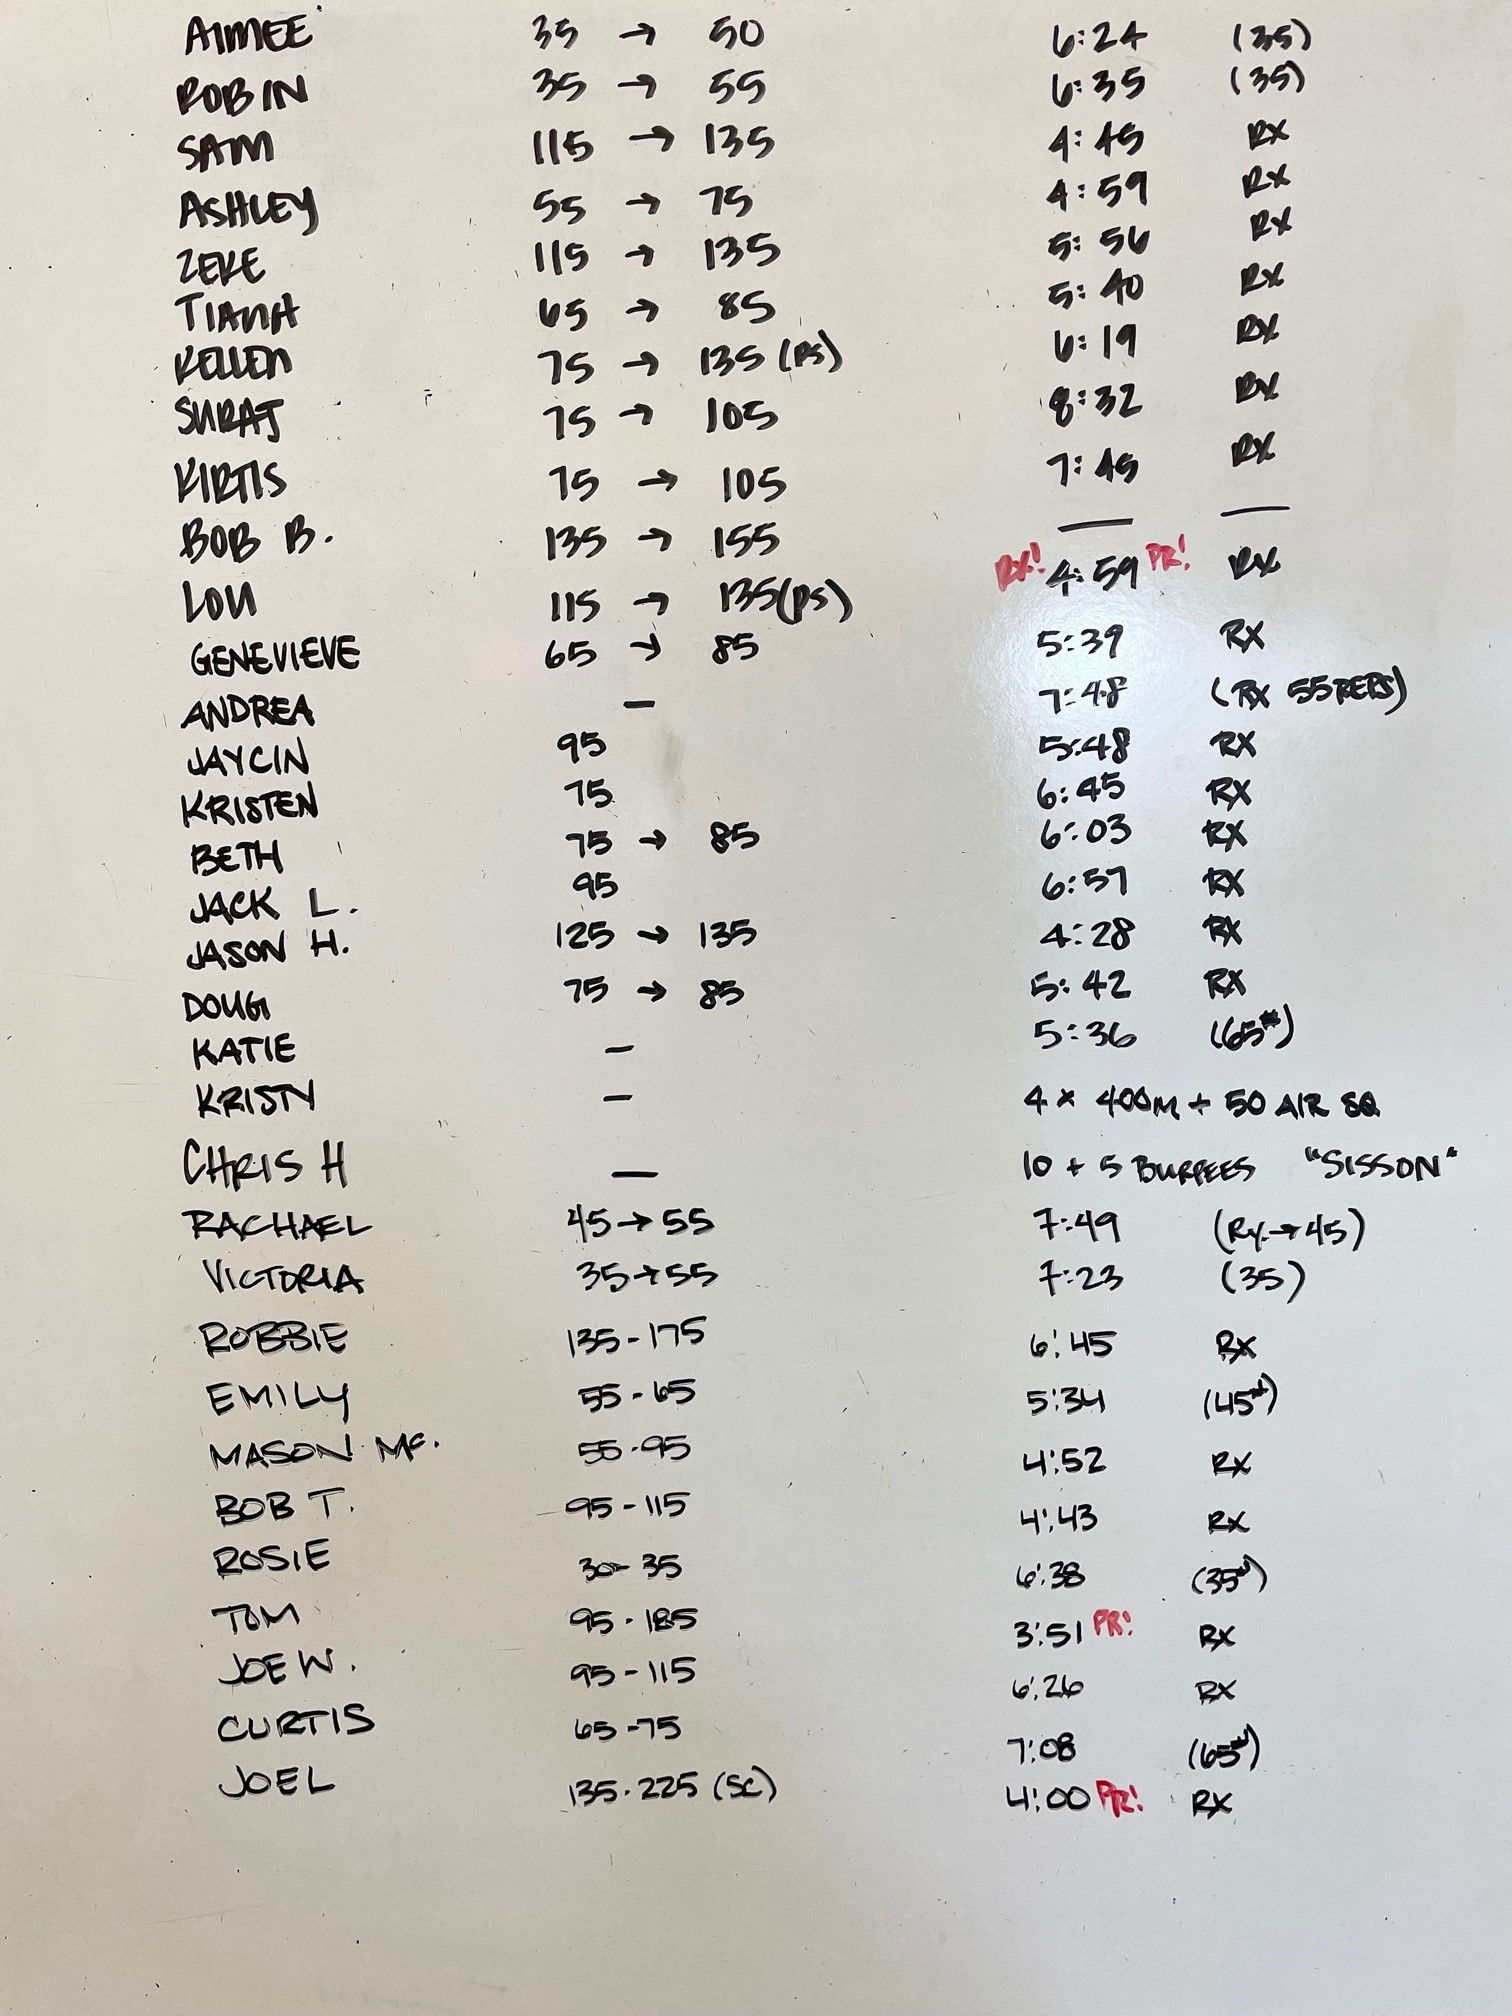 AIMEE 35 → 50 6:24 (35)
ROBIN 35 → 55 6:35 (35)
SAM 115 → 135 4:45 RX
ASHLEY 55 → 75 4:59 RX
ZEKE 115 → 135 5:56 RX
TIANA 65 → 85 5:40 RX
KELLEN 75 → 135 (PS) 6:19 RX
SURAJ 75 → 105 8:32 RX
KIRTIS 75 → 105 7:45 RX
BOB B. 135 → 155 — —
LOU 115 → 135 (PS) RX! 4:59 PR! RX
GENEVIEVE 65 → 85 5:39 RX
ANDREA — 7:48 (RX 55 REPS)
JAYCIN 95 5:48 RX
KRISTEN 75 6:45 RX
BETH 75 → 85 6:03 RX
JACK L. 95 6:57 RX
JASON H. 125 → 135 4:28 RX
DOUG 75 → 85 5:42 RX
KATIE — 5:36 (65#)
KRISTY — 4 x 400M + 50 AIR SQ
CHRIS H — 10 + 5 BURPEES "SISSON"
RACHAEL 45 → 55 7:49 (Rx → 45)
VICTORIA 35 → 55 7:23 (35)
ROBBIE 135 - 175 6:45 RX
EMILY 55 - 65 5:34 (45#)
MASON Mc. 55 - 95 4:52 RX
BOB T. 95 - 115 4:43 RX
ROSIE 30 - 35 6:38 (35#)
TOM 95 - 185 3:51 PR! RX
JOE W. 95 - 115 6:26 RX
CURTIS 65 - 75 7:08 (65#)
JOEL 135 - 225 (SC) 4:00 PR! RX